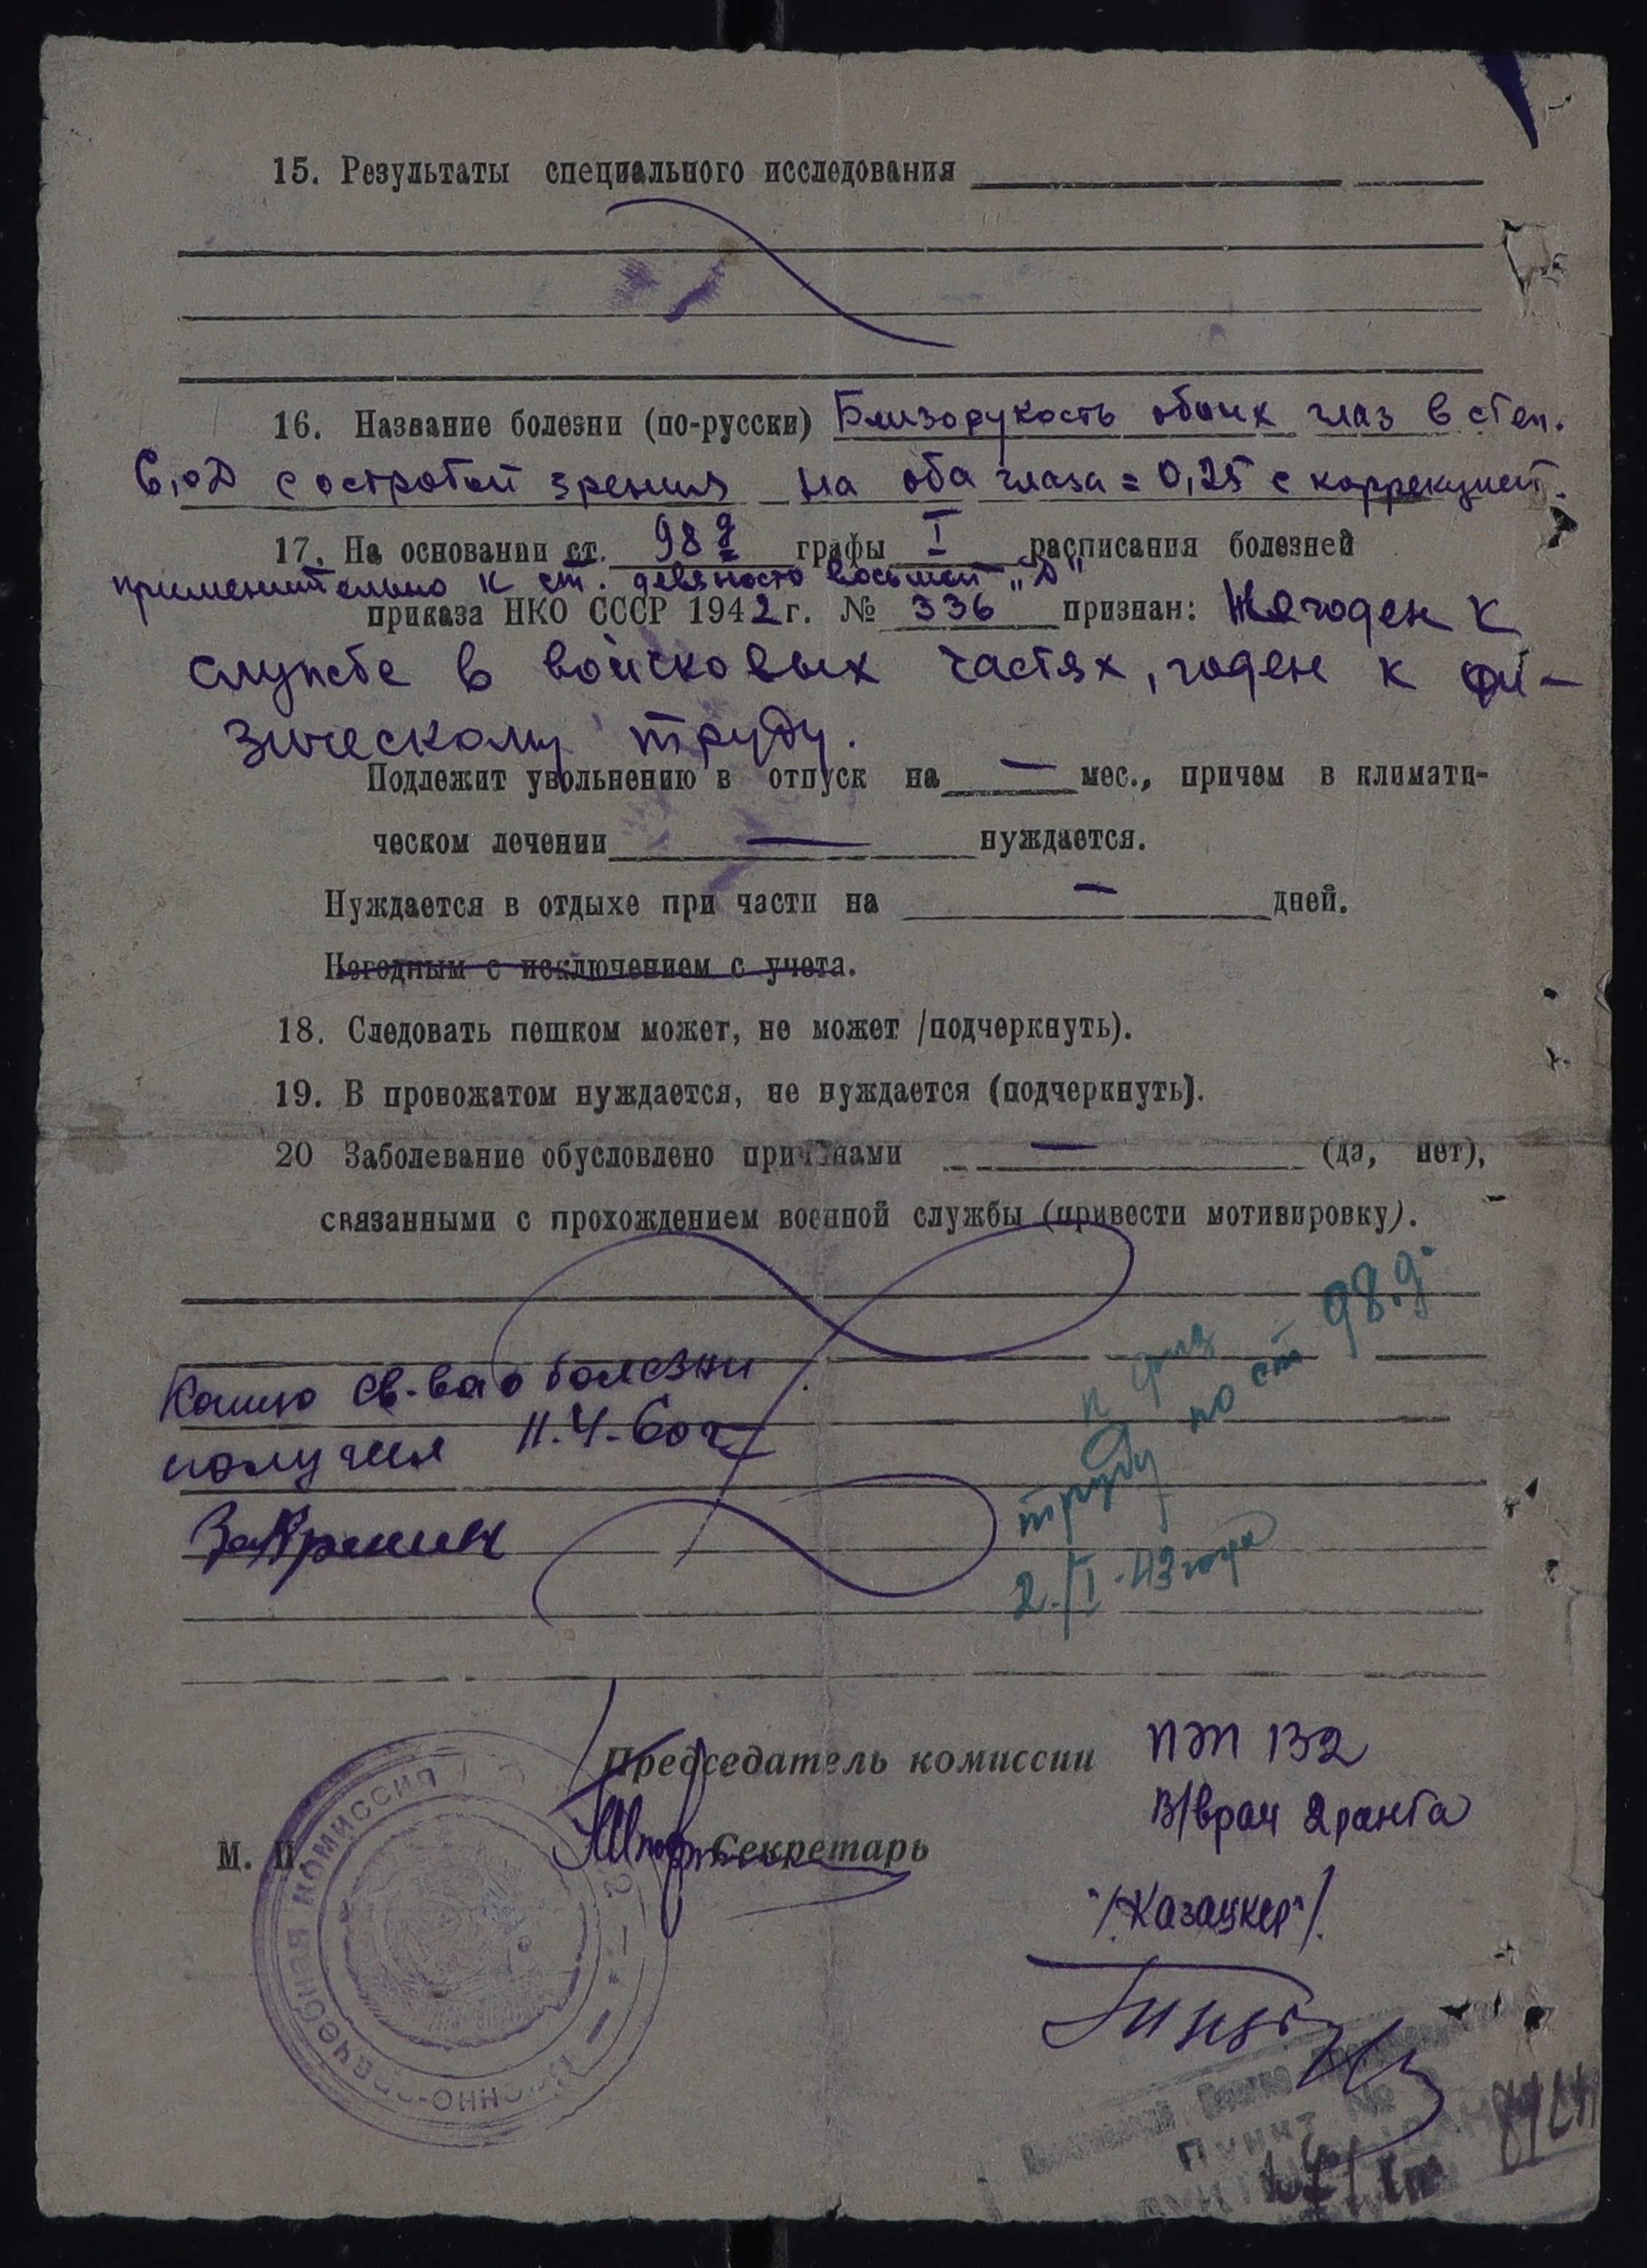 15. Результаты специального исследования
16. Название болезни (по-русски) Близорукость обоих глаз в степ.
6,0Д с остротой зрения на оба глаза = 0,25 с коррекцией.
17. На основании ст. 98 д графы I расписания болезней
применительно к ст. девяносто восьмой „Д"
приказа НКО СССР 1942 г. № 336 признан: Не годен к
службе в войсковых частях, годен к фи-
зическому труду.
Подлежит увольнению в отпуск на — мес., причем в климати-
ческом лечении — нуждается.
Нуждается в отдыхе при части на — дней.
Негодным с исключением с учета.
18. Следовать пешком может, не может /подчеркнуть).
19. В провожатом нуждается, не нуждается (подчеркнуть).
20 Заболевание обусловлено причинами — (да, нет),
связанными с прохождением военной службы (привести мотивировку).
к физ
труду по ст 98.д.
2./I-43 года
Копию св-ва о болезни
получил
Председатель комиссии
ПЭП 132
В/врач 2 ранга
М. П. Секретарь
"/Казацкер"/.
Военно-врачебная комиссия
пункт №